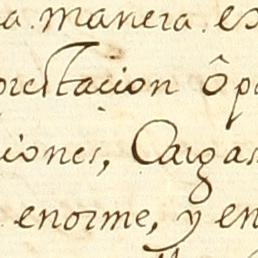 a manera es
prestacion ô pe
ciones, Cargas
enorme, y en